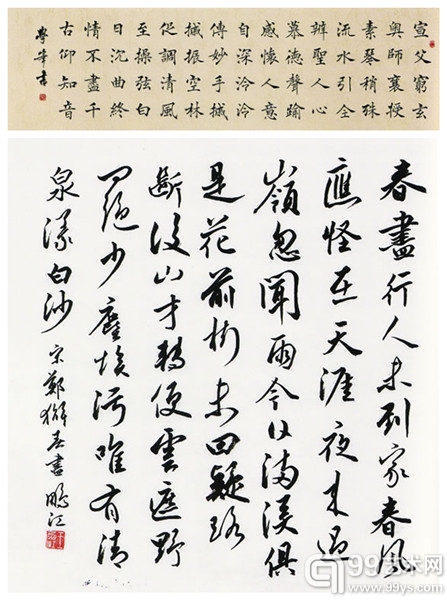 宣父窮玄
奧師襄授
素琴稍殊
流水引全
辨聖人心
慕德聲踰
感懷人意
自深泠泠
傳妙手摵
摵振空林
促調清風
至操弦白
日沉曲終
情不盡千
古仰知音
春盡行人未到家春風
應怪在天涯夜來過
嶺忽聞雨今日滿溪俱
是花前樹未回疑路
斷後山才轉便雲遮野
間絕少塵埃污唯有清
泉漾白沙 宋鄭獬 書 鵬江
99艺术网
www.99ys.com